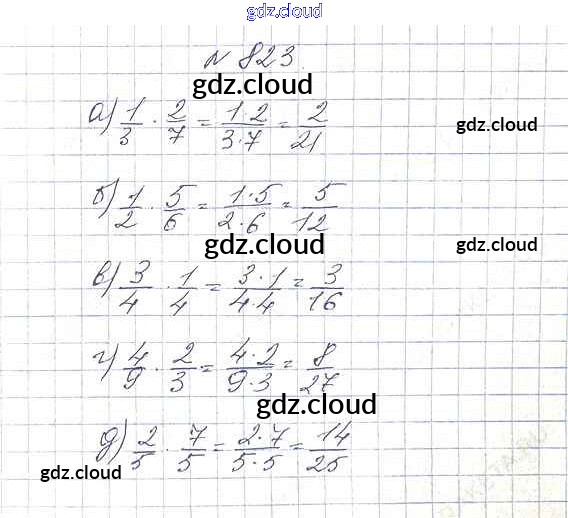 gdz.cloud
N 823.
gdz.cloud
а) 1/3 · 2/7 = 1·2/3·7 = 2/21
gdz.cloud
б) 1/2 · 5/6 = 1·5/2·6 = 5/12
gdz.cloud
gdz.cloud
в) 3/4 · 1/4 = 3·1/4·4 = 3/16
г) 4/9 · 2/3 = 4·2/9·3 = 8/27
gdz.cloud
д) 2/5 · 7/5 = 2·7/5·5 = 14/25
gdz.cloud